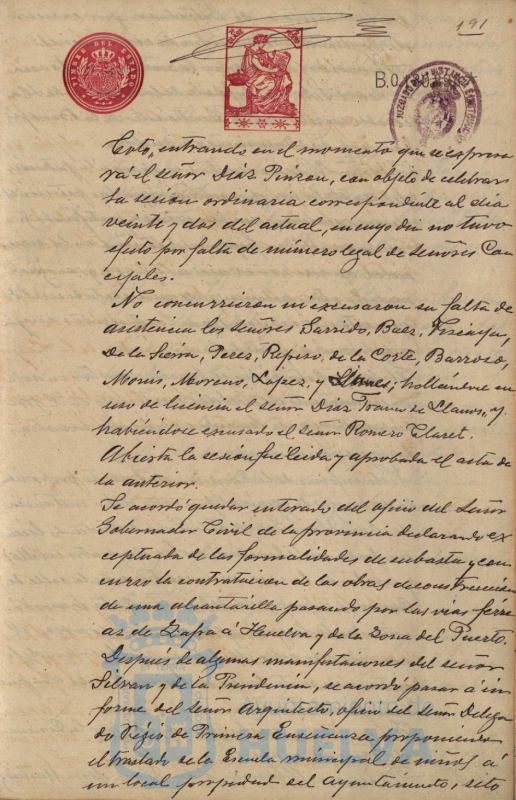 191
TIMBRE DEL ESTADO
B.0.
Coto, entrando en el momento que se expresa
rá el señor Diaz Pinzon, con objeto de celebrar
la sesion ordinaria correspondiente al dia
veinte y dos del actual, en cuyo dia no tuvo
efecto por falta de número legal de señores Con
cejales.
No concurrieron ni excusaron su falta de
asistencia los señores Garrido, Baez, Vizcaya,
De la Sierra, Perez, Repiso, de la Corte, Barroso,
Monis, Moreno, Lopez, y; hallandose en
uso de licencia el señor Diaz Franco de Llanos, y
habiéndose excusado el señor Romero Claret.
Abierta la sesion fue leida y aprobada el acta de
la anterior.
Se acordó quedar enterado del oficio del Señor
Gobernador Civil de la provincia declarando ex
ceptuada de las formalidades de subasta y con
curso la contratacion de las obras de construccion
de una alcantarilla pasando por las vias férre
as de Zafra á Huelva y de la Zona del Puerto.
Después de algunas manifestaciones del señor
Silvan y de la Presidencia, se acordó pasar á in
forme del señor Arquitecto, oficio del señor Delega
do Régio de Primera Enseñanza proponiendo
el traslado de la Escuela municipal de niños á
un local propiedad del Ayuntamiento, sito
HUELVA